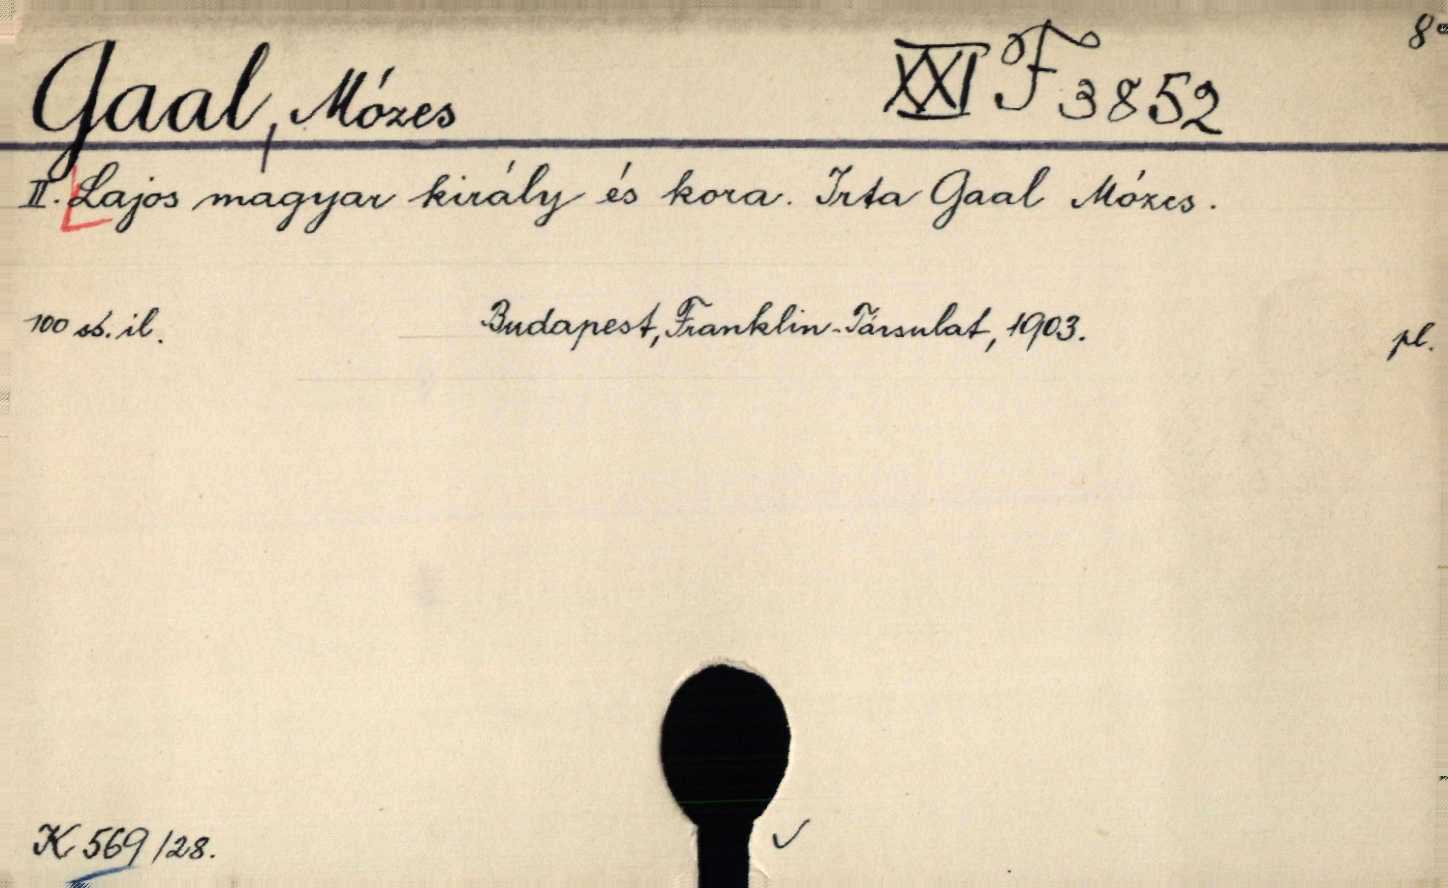 Gaal, Mózes XXI F 3852 8°
II. Lajos magyar király és kora. Irta Gaal Mózes.
100 ss. il. Budapest, Franklin-Társulat, 1903. pl.
K 569/28.